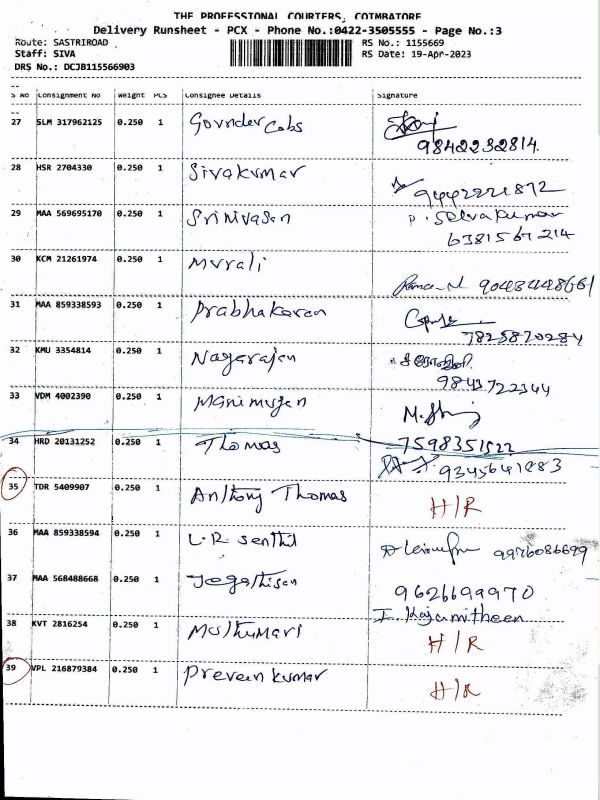 THE PROFESSIONAL COURIERS, COIMBATORE
Delivery Runsheet - PCX - Phone No.:0422-3505555 - Page No.:3
Route: SASTRIROAD RS No.: 1155669
Staff: SIVA RS Date: 19-Apr-2023
DRS No.: DCJB115566903
S No Consignment No Weight PCS Consignee Details Signature
27 SLM 317962125 0.250 1 Govinder Cabs
9842232814
28 HSR 2704330 0.250 1 Sivakumar
9442221872
29 MAA 569695170 0.250 1 Srinivasan P. Selvakumar
6381567214
30 KCM 21261974 0.250 1 Murali
9043448661
31 MAA 859338593 0.250 1 Prabhakaran
7825870284
32 KMU 3354814 0.250 1 Nagarajan
9843722344
33 VDM 4002390 0.250 1 Manimugan
7598351522
34 HRD 20131252 0.250 1 Thomas
9345641283
35 TDR 5409907 0.250 1 Anthony Thomas H/R
36 MAA 859338594 0.250 1 L.R senthil 9976086699
37 MAA 568488668 0.250 1 Jegathisan 9626699970
I. Kajamitheen
38 KVT 2816254 0.250 1 Muthumari H/R
39 VPL 216879384 0.250 1 Praveen kumar H/R